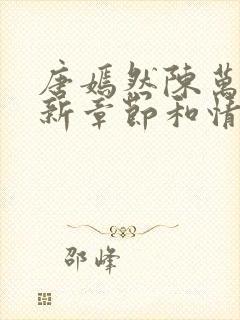 唐嫣然陳萬
新章節和情
邵峰